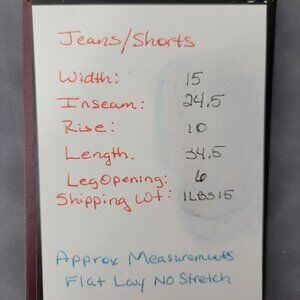 Jeans/Shorts
Width: 15
Inseam: 24.5
Rise: 10
Length. 34.5
Leg Opening: 6
Shipping Wt: 1LBS15
Approx Measurements
Flat Lay No Stretch